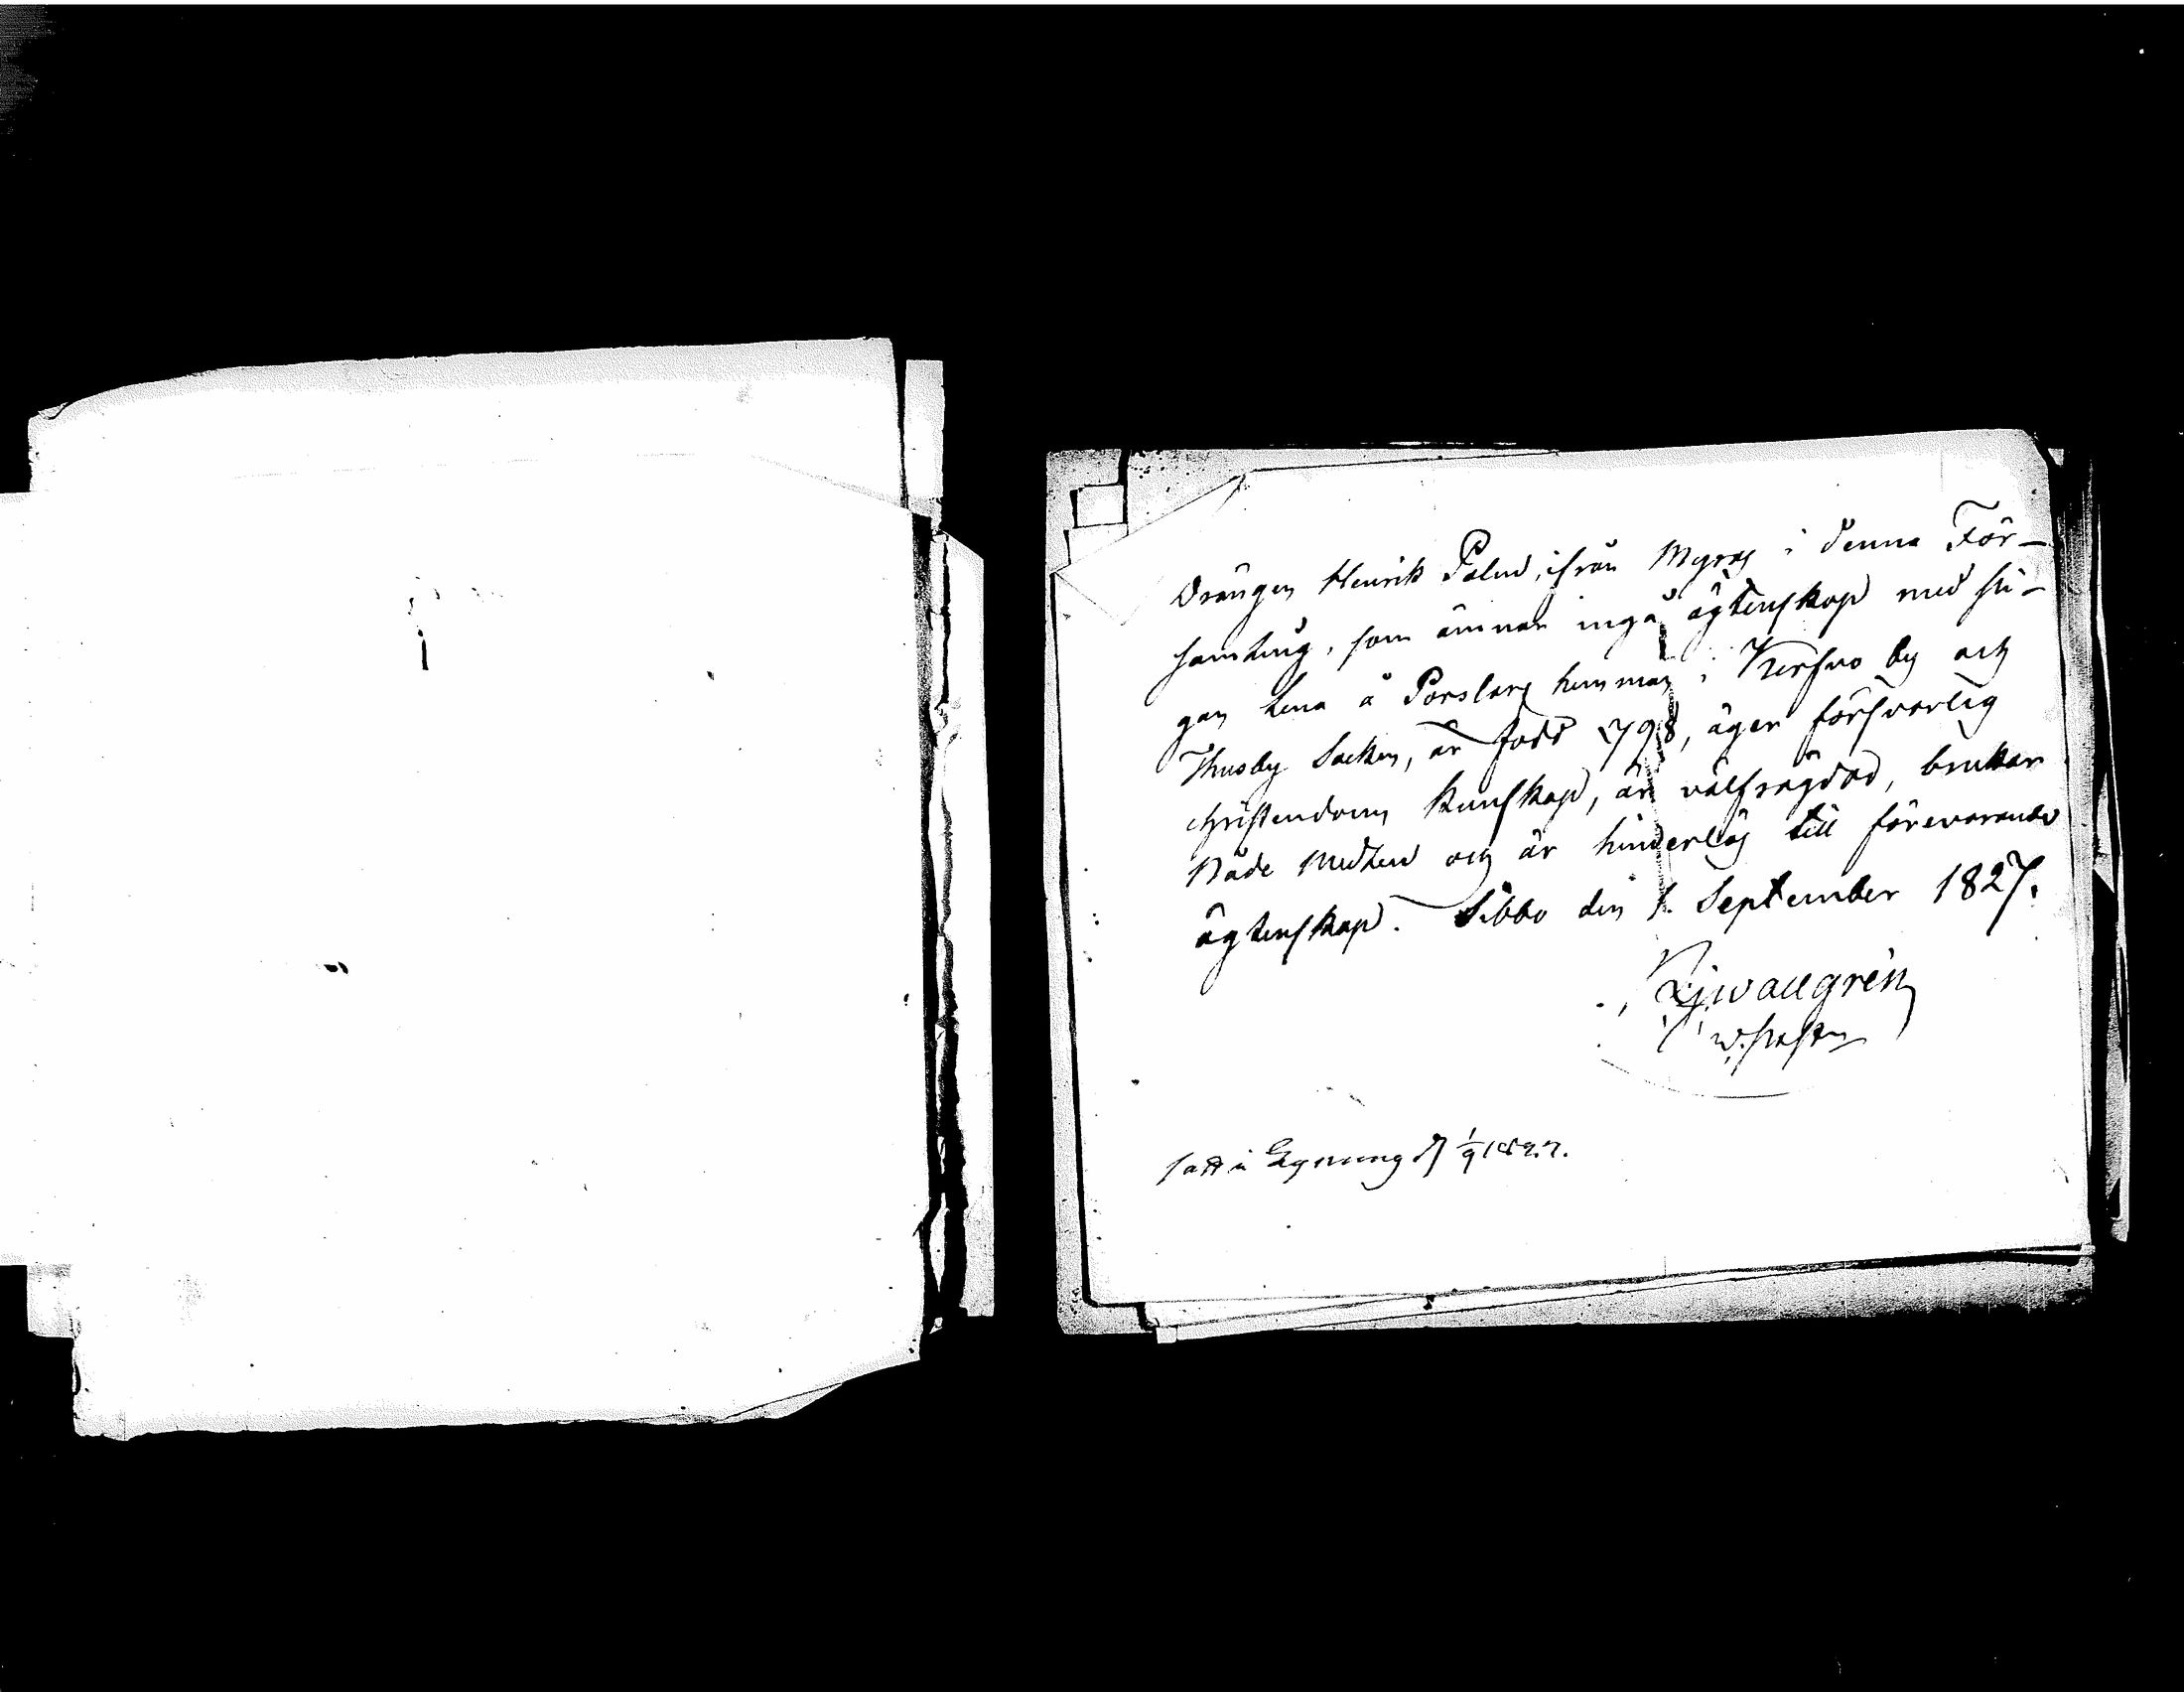 Drängen Henrik Palm, ifrån Myras i denna För-
samling, som ämnar ingå ägtenskap med pi-
gan Lena å Porslars hemman i Kerfvo by och
Thusby Socken, är född 1798, äger försvarlig
christendoms kunskap, är välfrägdad, brukar
Nåde medlen och är hinderlös till förevarande
ägtenskap. Sibbo den 1. September 1827.
wallgrén
w. pastor
1/9 1827.